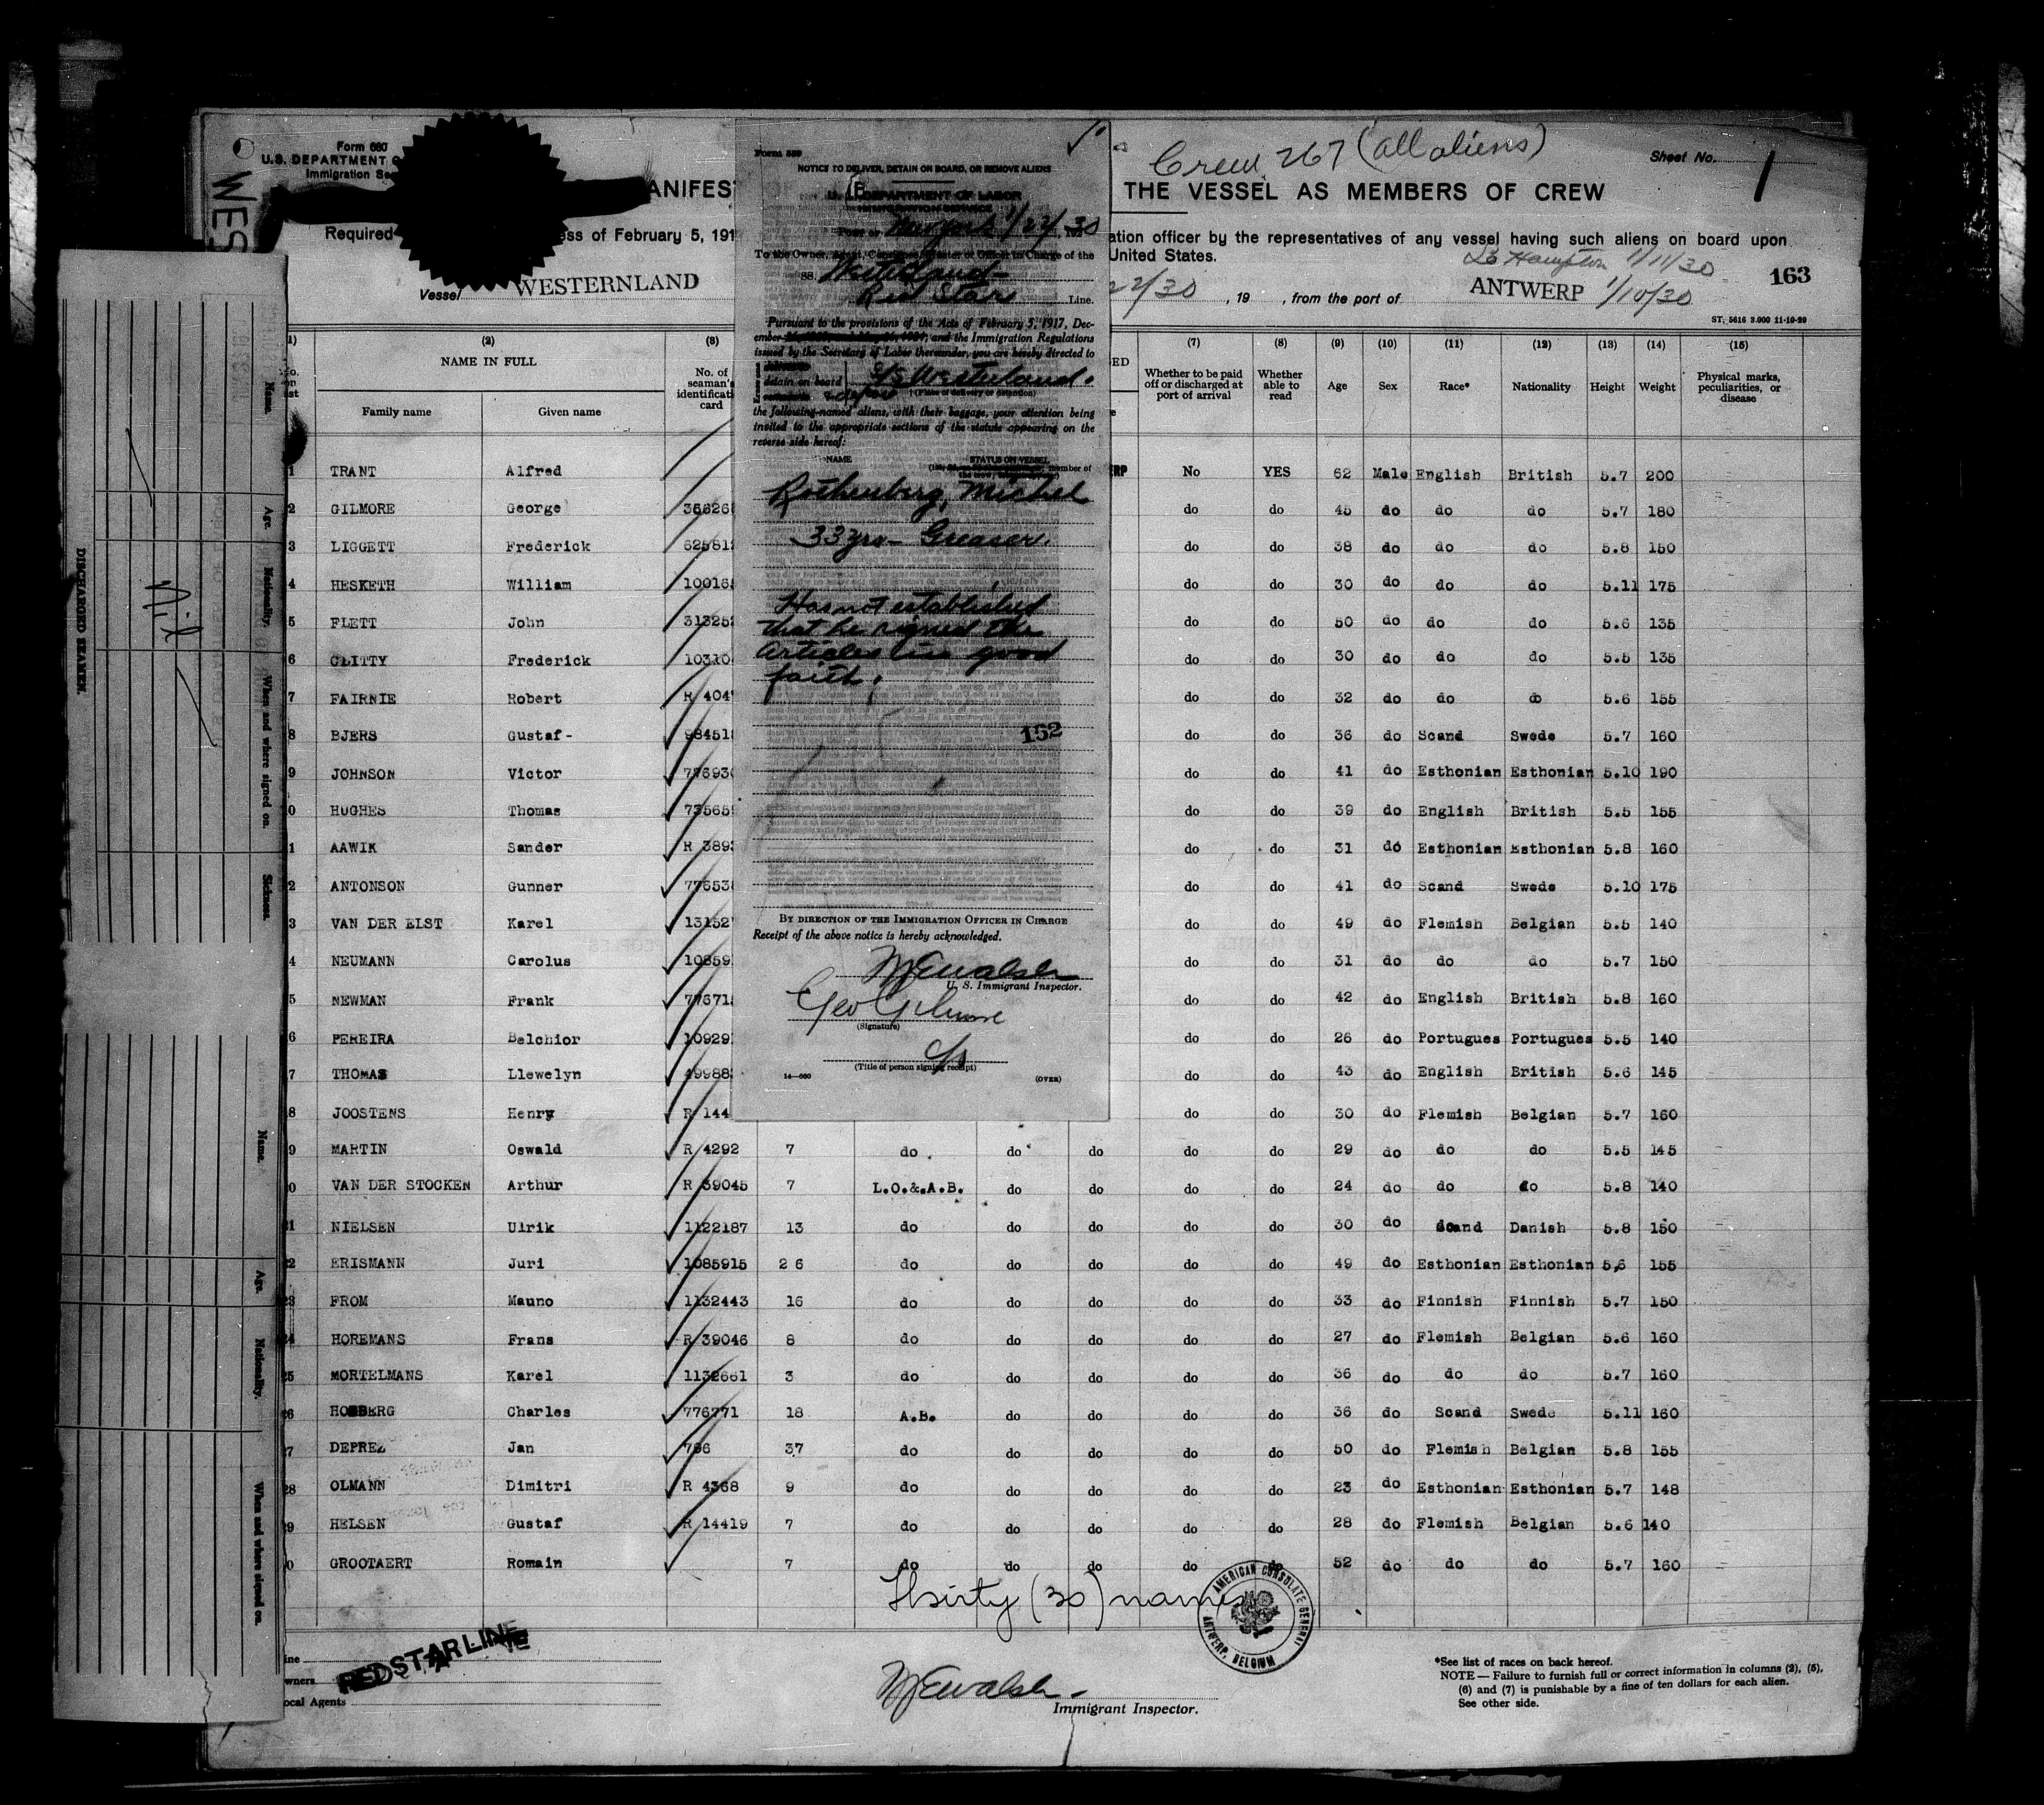 Form 660
U.S. DEPARTMENT
Immigration
Crew 267 (all aliens)
Sheet No. 1
WES
THE VESSEL AS MEMBERS OF CREW
Required
ess of February 5, 191
ation officer by the representatives of any vessel having such aliens on board upon
United States.
So Hampton 1/11/30
Vessel WESTERNLAND
22/30 , 19 , from the port of ANTWERP 1/10/30
163
ST. 5616 3.000 11-10-29
(2) (3) (7) (8) (9) (10) (11) (12) (13) (14) (15)
NAME IN FULL
Family name Given name
No. of seaman's identificati card
Whether to be paid off or discharged at port of arrival
Whether able to read
Age Sex Race* Nationality Height Weight
Physical marks, peculiarities, or disease
1 TRANT Alfred No YES 62 Male English British 5.7 200
2 GILMORE George do do 45 do do do 5.7 180
3 LIGGETT Frederick do do 38 do do do 5.8 150
4 HESKETH William 10016 do do 30 do do do 5.11 175
5 FLETT John do do 50 do do do 5.6 135
6 CLITTY Frederick 10310 do do 30 do do do 5.5 135
7 FAIRNIE Robert R 404 do do 32 do do do 5.6 155
8 BJERS Gustaf- 98451 do do 36 do Scand Swede 5.7 160
9 JOHNSON Victor 77693 do do 41 do Esthonian Esthonian 5.10 190
0 HUGHES Thomas 73565 do do 39 do English British 5.5 155
1 AAWIK Sander R 389 do do 31 do Esthonian Esthonian 5.8 160
2 ANTONSON Gunner 77653 do do 41 do Scand Swede 5.10 175
3 VAN DER ELST Karel 13152 do do 49 do Flemish Belgian 5.5 140
4 NEUMANN Carolus 10859 do do 31 do do do 5.7 150
5 NEWMAN Frank 77671 do do 42 do English British 5.8 160
6 PEREIRA Belchior 10929 do do 26 do Portugues Portugues 5.5 140
7 THOMAS Llewelyn 49988 do do 43 do English British 5.6 145
8 JOOSTENS Henry R 144 do do 30 do Flemish Belgian 5.7 160
9 MARTIN Oswald R 4292 7 do do do do do 29 do do do 5.5 145
0 VAN DER STOCKEN Arthur R 39045 7 L.O.&.A.B. do do do do 24 do do do 5.8 140
21 NIELSEN Ulrik 1122187 13 do do do do do 30 do Scand Danish 5.8 150
22 ERISMANN Juri 1085915 26 do do do do do 49 do Esthonian Esthonian 5,6 155
23 FROM Mauno 1132443 16 do do do do do 33 do Finnish Finnish 5.7 150
24 HOREMANS Frans R 39046 8 do do do do do 27 do Flemish Belgian 5.6 160
25 MORTELMANS Karel 1132661 3 do do do do do 36 do do do 5.7 160
26 Charles 776771 18 A.B. do do do do 36 do Scand Swede 5.11 160
27 DEPREZ Jan 766 37 do do do do do 50 do Flemish Belgian 5.8 155
28 OLMANN Dimitri R 4368 9 do do do do do 23 do Esthonian Esthonian 5.7 148
29 HELSEN Gustaf R 14419 7 do do do do do 28 do Flemish Belgian 5.6 140
0 GROOTAERT Romain 7 do do do do do 52 do do do 5.7 160
Thirty (30) names
AMERICAN CONSULATE GENERAL
ANTWERP, BELGIUM
ine
RED STAR LINE
wners
ocal Agents
Immigrant Inspector.
*See list of races on back hereof.
NOTE — Failure to furnish full or correct information in columns (2), (5),
(6) and (7) is punishable by a fine of ten dollars for each alien.
See other side.
NOTICE TO DELIVER, DETAIN ON BOARD, OR REMOVE ALIENS
U. S. DEPARTMENT OF LABOR
IMMIGRATION SERVICE
Port of New York 1/22/30
To the Owner, Agent, Consignee, Master or Officer in Charge of the
SS. Westernland
Red Star Line.
Pursuant to the provisions of the Acts of February 5, 1917, Dec-
ember and the Immigration Regulations
issued by the Secretary of Labor thereunder, you are hereby directed to
detain on board SS Westerland.
(Place of delivery or detention)
the following-named aliens, with their baggage, your attention being
invited to the appropriate sections of the statute appearing on the
reverse side hereof:
NAME STATUS ON VESSEL
Rothenberg, Michel
33 yrs - Greaser.
Has not established
that he signed the
articles in good
faith.
152
BY DIRECTION OF THE IMMIGRATION OFFICER IN CHARGE
Receipt of the above notice is hereby acknowledged.
U. S. Immigrant Inspector.
Geo Gilmore
(Signature)
(Title of person signing receipt)
14—660 (OVER)
DISCHARGED SEAMEN.
Name. Age. Nationality. When and where signed on. Sickness.
Nil
Name. Age. Nationality. When and where signed on.